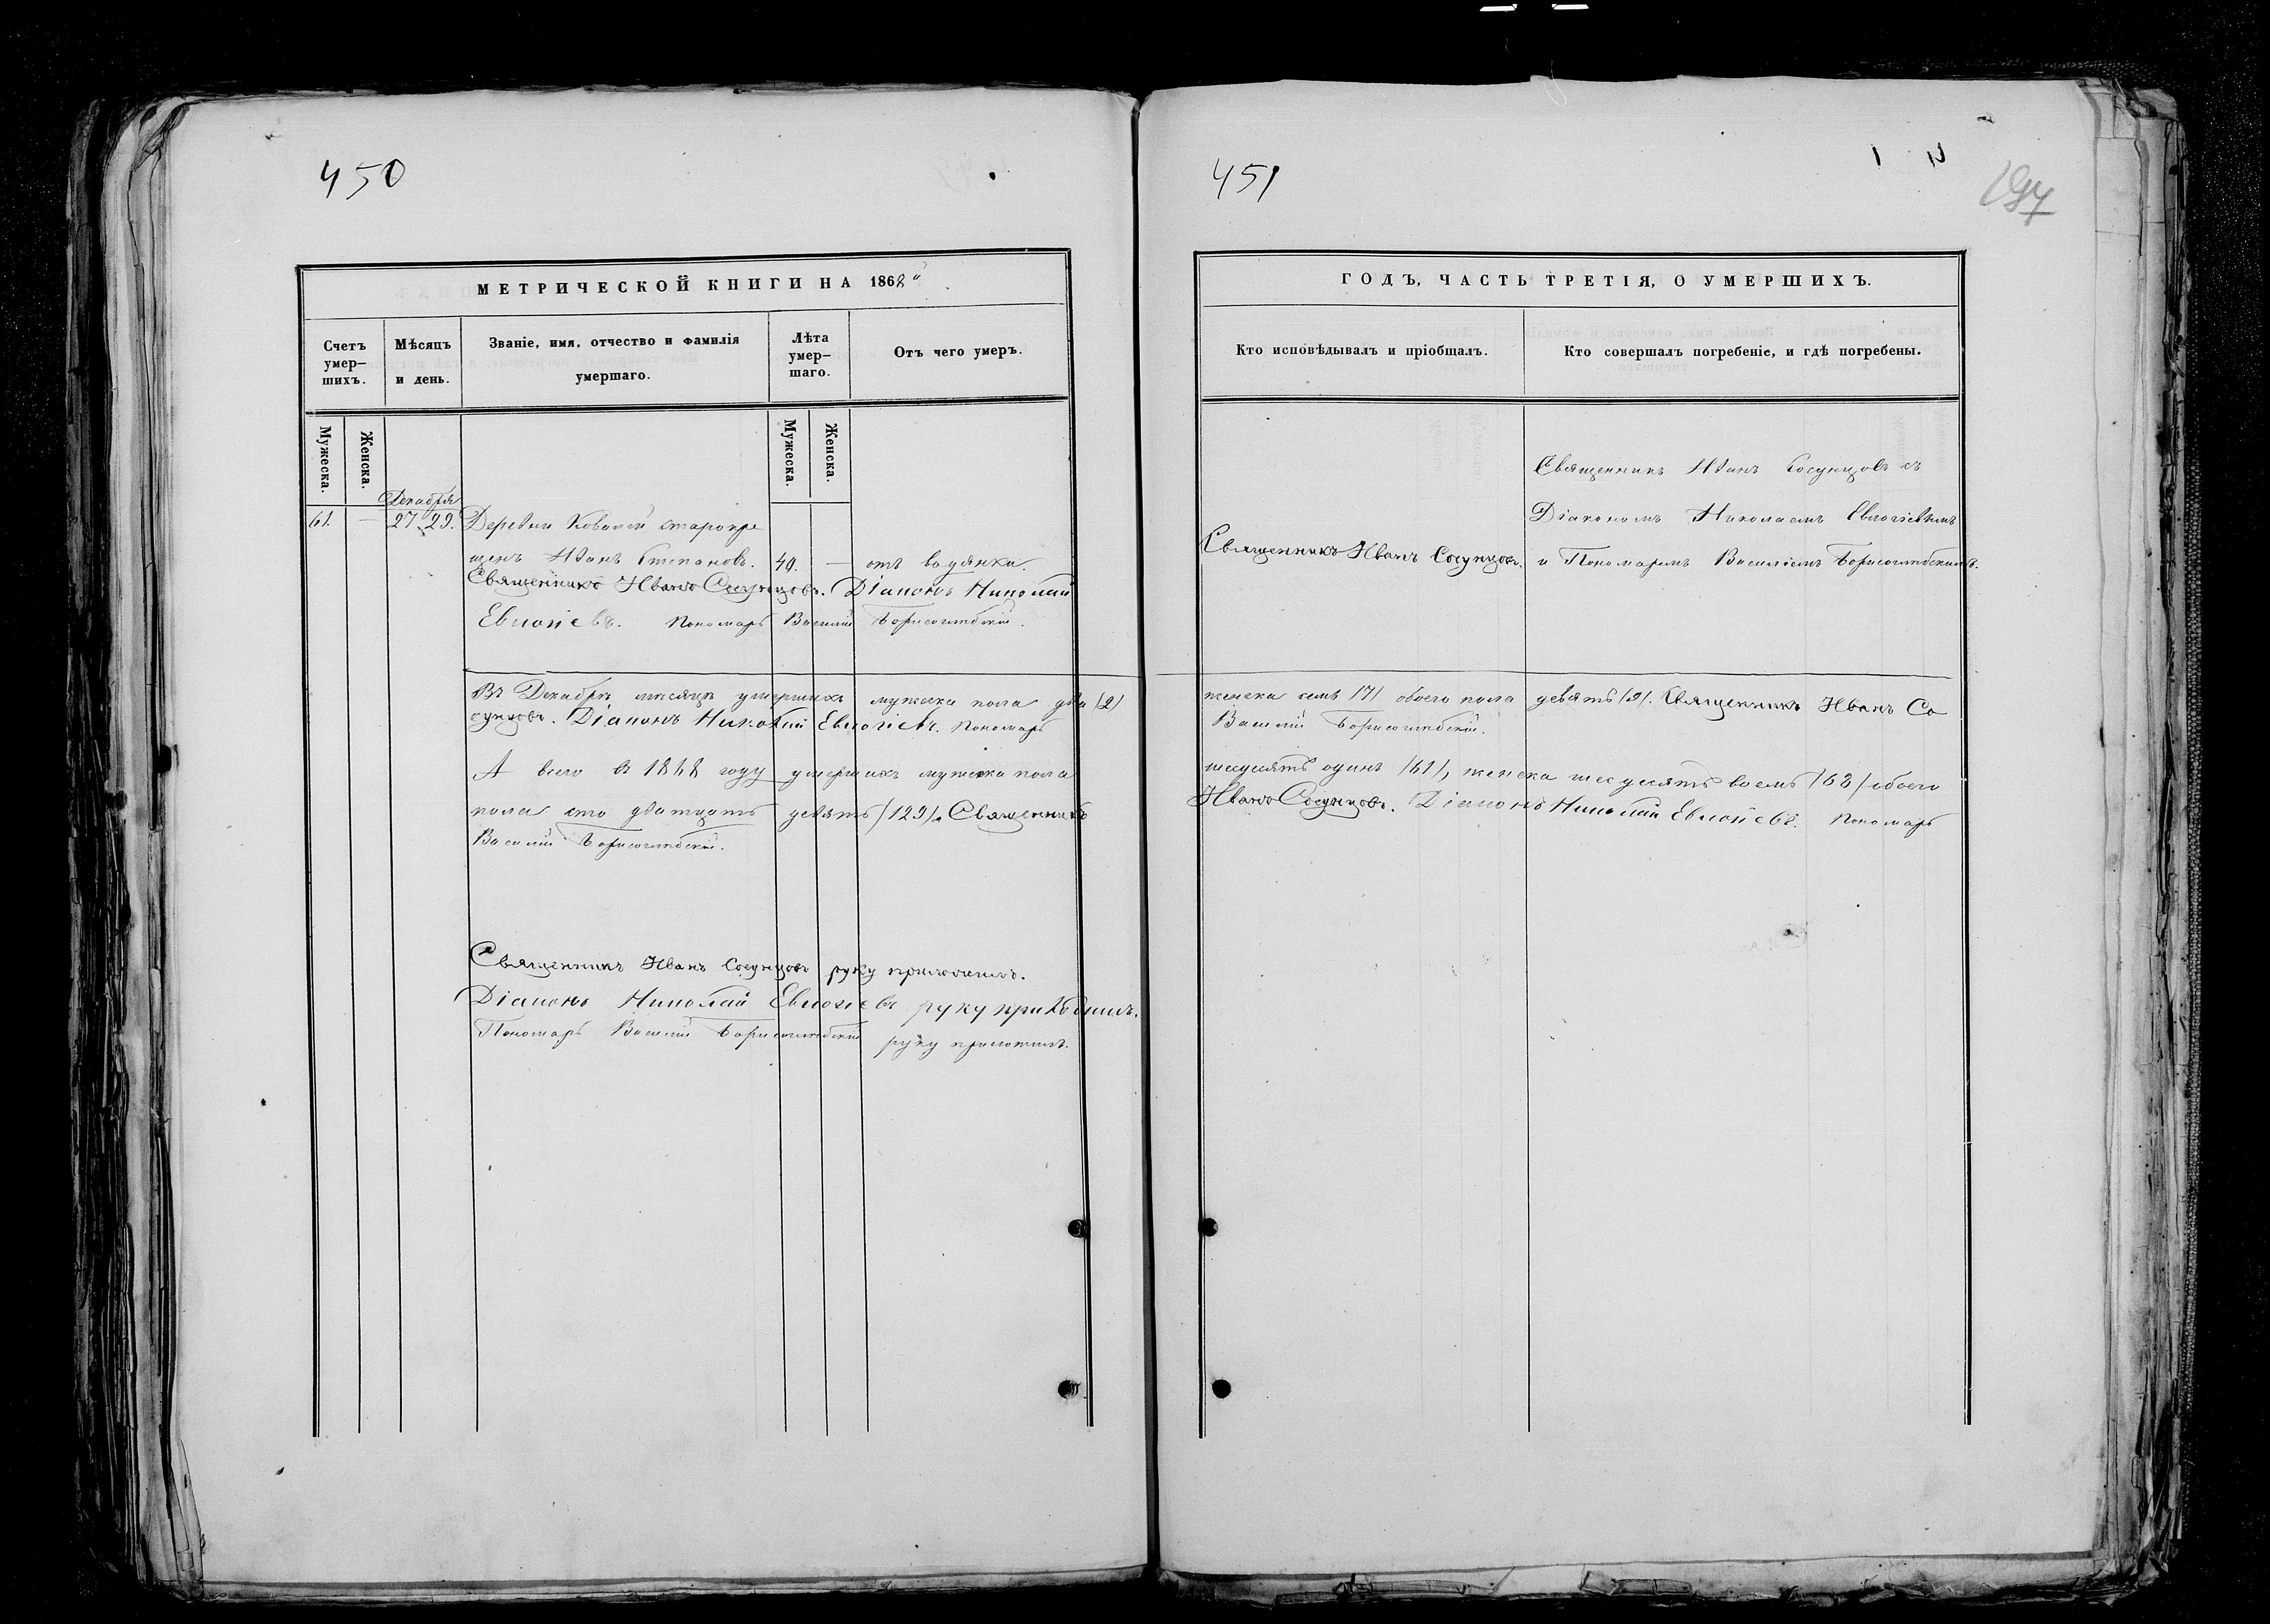 450
МЕТРИЧЕСКОЙ КНИГИ НА 1868
Счетъ умер-шихъ.
Мѣсяцъ и день.
Званіе, имя, отчество и фамилія умершаго.
Лѣта умер-шаго.
Отъ чего умеръ.
Мужеска.
Женска.
Мужеска.
Женска.
Декабря
61. — 27. 29. Деревни Ковалей старокре
щенъ Иванъ Степановъ. 40. — отъ водянки.
Священникъ Иванъ Сосунцовъ. Діаконъ Николай
Евлогіевъ. Пономарь Василій Борисоглѣбскій.
Въ Декабрѣ мѣсяцѣ умершихъ мужеска пола два (2)
сунцовъ. Діаконъ Николай Евлогіевъ. Пономарь
А всего въ 1868 году умершихъ мужеска пола
пола сто дватцать девять (129). Священникъ
Василій Борисоглѣбскій.
Священникъ Иванъ Сосунцовъ руку приложилъ.
Діаконъ Николай Евлогіевъ руку приложилъ.
Пономарь Василій Борисоглѣбскій руку приложилъ.
451
197
ГОДЪ, ЧАСТЬ ТРЕТІЯ, О УМЕРШИХЪ.
Кто исповѣдывалъ и пріобщалъ.
Кто совершалъ погребеніе, и гдѣ погребены.
Священникъ Иванъ Сосунцовъ.
Священникъ Иванъ Сосунцовъ съ
Діакономъ Николаемъ Евлогіевымъ
и Пономаремъ Василіемъ Борисоглѣбскимъ.
женска семь (7) обоего пола девять (9). Священникъ Иванъ Со
Василій Борисоглѣбскій.
шесдсятъ одинъ (61), женска шесдсятъ восемь (68) обоего
Иванъ Сосунцовъ. Діаконъ Николай Евлогіевъ. Пономарь